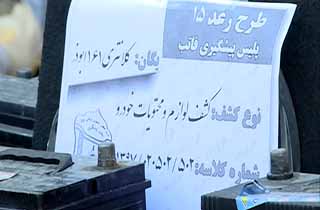 طرح رعد ۱۵
پلیس پیشگیری فاتب
یگان: کلانتری ۱۶۱ ابوذر
نوع کشف: کشف لوازم و محتویات خودرو
شماره کلاسه: ۱۳۹۷/۰۲۰۵۰۲/۵۰۲